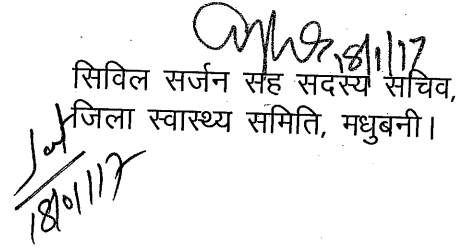 18/1/17
सिविल सर्जन सह सदस्य सचिव,
जिला स्वास्थ्य समिति, मधुबनी।
18/01/17